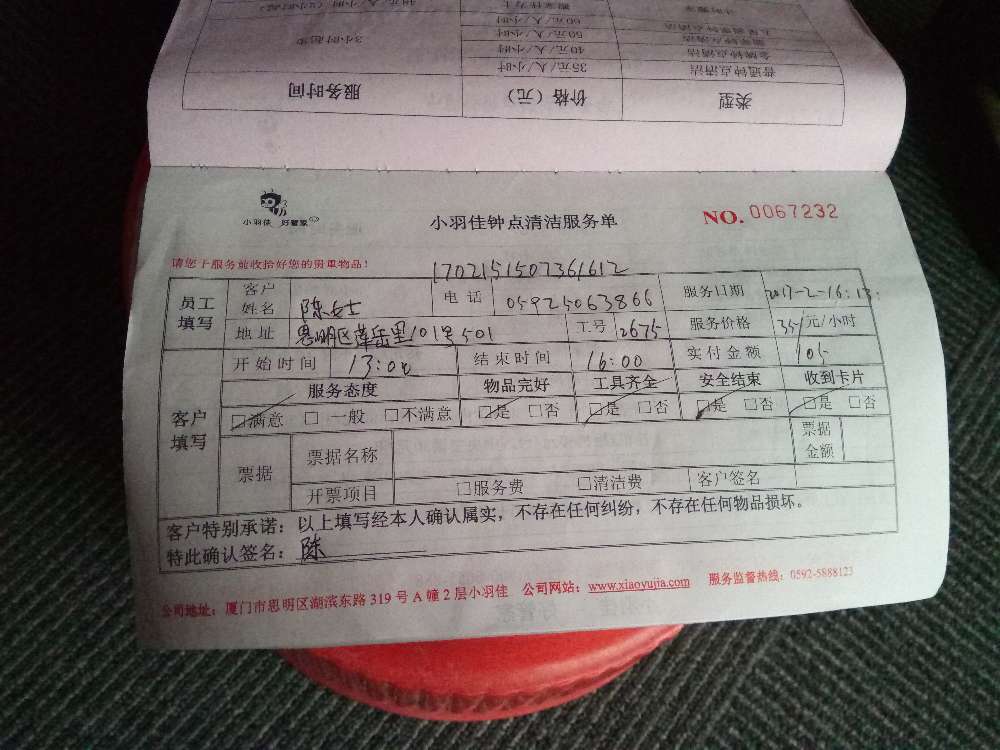 小时搬家
搬家体力工
五星居家钟点清洁 60元/人/小时
50元/人/小时
金牌钟点清洁 40元/人/小时 3小时起步
普通钟点清洁 35元/人/小时
类型 价格（元） 服务时间
小羽佳 好管家
小羽佳钟点清洁服务单
NO. 0067232
请您于服务前收拾好您的贵重物品！
1702151507361612
员工填写 客户姓名 陈女士 电话 05925063866 服务日期 2017-2-16:13.
地址 思明区莲岳里101号501 工号 2675 服务价格 35/元/小时
客户填写 开始时间 13:00 结束时间 16:00 实付金额 105
服务态度 物品完好 工具齐全 安全结束 收到卡片
□满意 □一般 □不满意 □是 □否 □是 □否 □是 □否 □是 □否
票据 票据名称 票据金额
开票项目 □服务费 □清洁费 客户签名
客户特别承诺：以上填写经本人确认属实，不存在任何纠纷，不存在任何物品损坏。
特此确认签名：陈
公司地址：厦门市思明区湖滨东路319号A幢2层小羽佳 公司网站：www.xiaoyujia.com 服务监督热线：0592-5888123